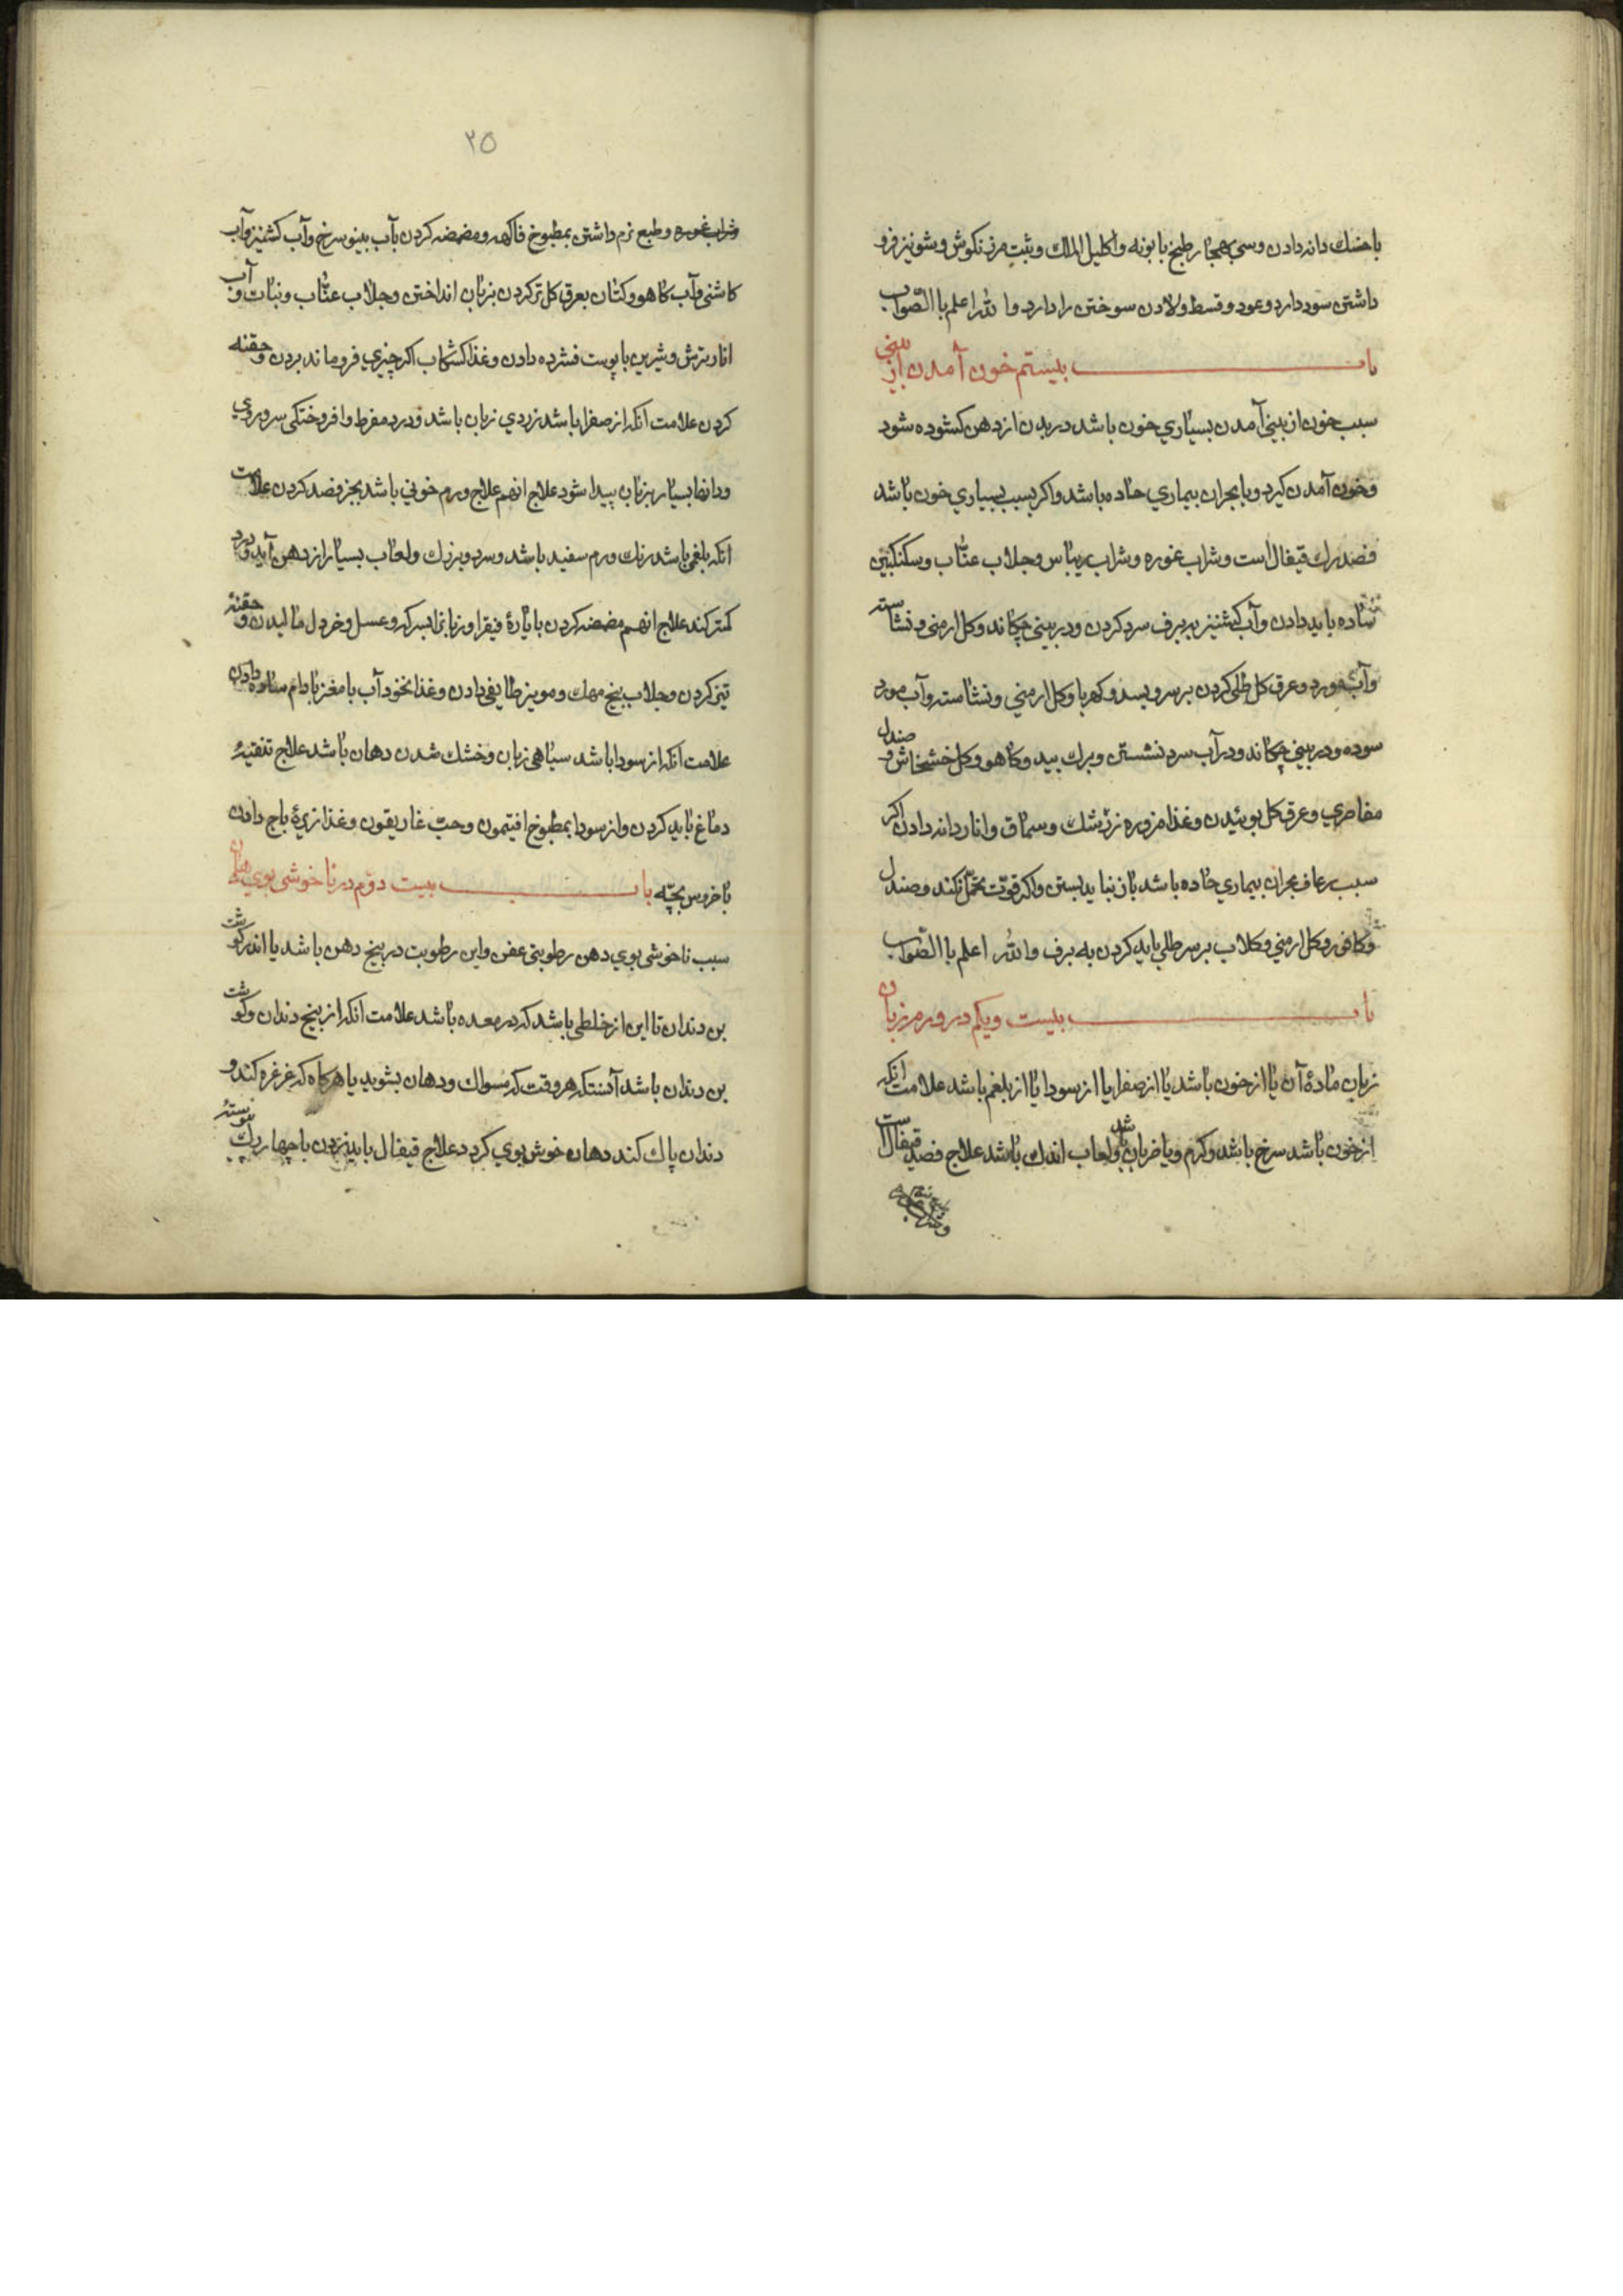 باخسك دانه دادن و سر بهجار طبخ بابونه و اکلیل الملك و شبت مرزنکوش و شونیز فرو
داشتن سود دارد و عود و قسط و لادن سوختن را دارد والله اعلم باالصّواب
باب بیستم خون آمدن از بینی
سبب خون از بینی آمدن بسیاري خون باشد در بدن از دهن کشوده شود
و خون آمدن کیرد و یا بحران بیماري حاده باشد و اکر بسبب بسیاري خون باشد
فصد رك قیفال است و شراب غوره و شراب ریباس و جلاب عنّاب و سکنکبین
ساده باید دادن و آب کشنیز ببرف سرد کردن و در بینی چکاند و کل ارمنی و نشاسته
و آب مورد و عرق کل طلی کردن بر سر و بسد و کهربا و کل ارمني و نشاسته و آب مورد
سوده و در بیني چکاند و در آب سرد نشستن و برك بید و کاهو و کل خشخاش و صندل
مقاصري و عرق کل بوئیدن و غذا مزوره زرشك و سماق و انار دانه دادن اکر
سبب رعاف بحران بیماري حاده باشد باز نباید بستن و اکر قوّت تحمّل نکند و صندل
و کافور و کل ارمني و کلاب بر سر طلي باید کردن به برف والله اعلم باالصّواب
باب بیست و یکم در ورم زبان
زبان مادهٔ آن یا از خون باشد یا از صفرا یا از سودا یا از بلغم باشد علامت انکه
از خون باشد سرخ باشد و کرم و با ضربان باشد و لعاب اندك باشد علاج فصد قیفال است
۲۵
و شراب غوره و طبع نرم داشتن بمطبوخ فاکهه و مضمضه کردن بآب بینو سرخ و آب کشنیز و آب
کاشنی و آب کاهو و کتان بعرق کل تر کردن بزبان انداختن و جلاب عنّاب و نبات و آب
انار ترش و شیرین با پوست فشرده دادن و غذا کشکاب اکر چیزي فرو ماند بردن و حقنه
کردن علامت انکه از صفرا باشد زردي زبان باشد و درد مفرط و افروختکی سر و روي
و دانها بسیار بزبان پیدا شود علاج انهم علاج ورم خوني باشد بجز فصد کردن علامت
انکه بلغمی باشد رنك ورم سفید باشد و سرد و بزرك و لعاب بسیار از دهن آید و درد
کمتر کند علاج انهم مضمضه کردن بایارهٔ فیقرا و زبانرا بسرکه و عسل و خردل مالیدن و حقنهٔ
تیز کردن و جلاب بیخ مهك و مویز طایفی دادن و غذا نخود آب با مغز بادام ساده دادن
علامت انکه از سودا باشد سیاهی زبان و خشك شدن دهان باشد علاج تنقیهٔ
دماغ باید کردن و از سودا بمطبوخ افتیمون و حبّ غاریقون و غذا زیرهٔ باج دادن
با خروس بچّه باب بیست دوّم در ناخوشی بوي دهان
سبب ناخوشی بوي دهن رطوبتی عفن و این رطوبت در بیخ دهن باشد یا اندر کوشت
بن دندان تا این از خلطی باشد که در معده باشد علامت انکه از بیخ دندان و کوشت
بن دندان باشد آنستکه هر وقت که مسواك و دهان بشوید یا هرکاه که غرغره کند و
دندان پاك کند دهان خوش بوي کردد علاج قیفال باید زدن یا چهار رك پیوسته